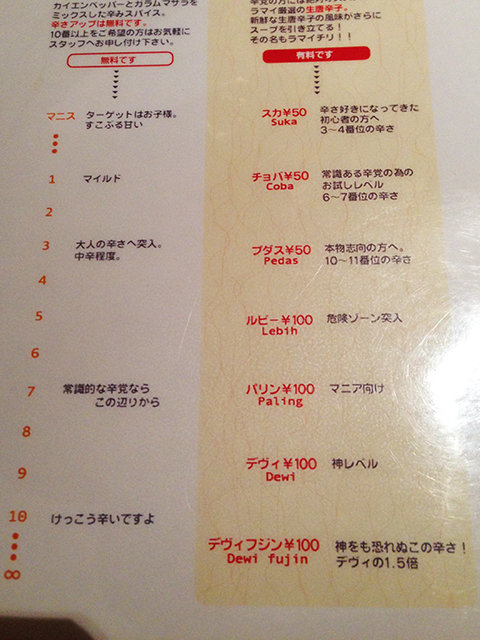 カイエンペッパーとカラムマサラを
ミックスした辛みスパイス。
辛さアップは無料です。
10番以上をご希望の方はお気軽に
スタッフへお申し付け下さい。
無料です
マニス ターゲットはお子様。
すこぶる甘い
1 マイルド
2
3 大人の辛さへ突入。
中辛程度。
4
5
6
7 常識的な辛党なら
この辺りから
8
9
10 けっこう辛いですよ
∞
ラマイ厳選の生唐辛子。
新鮮な生唐辛子の風味がさらに
スープを引き立てる！
その名もラマイチリ！！
有料です
スカ¥50 辛さ好きになってきた
Suka 初心者の方へ
3〜4番位の辛さ
チョバ¥50 常識ある辛党の為の
Coba お試しレベル
6〜7番位の辛さ
プダス¥50 本物志向の方へ。
Pedas 10〜11番位の辛さ
ルビー¥100 危険ゾーン突入
Lebih
パリン¥100 マニア向け
Paling
デヴィ¥100 神レベル
Dewi
デヴィフジン¥100 神をも恐れぬこの辛さ！
Dewi fujin デヴィの1.5倍